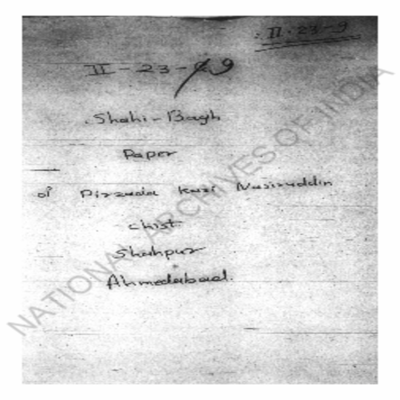 II-23-9
II-23-9
Shahi-Bagh
Paper
of Pirzada Kazi Nasiruddin
Chist
Shahpur
Ahmedabad.
NATIONAL ARCHIVES OF INDIA